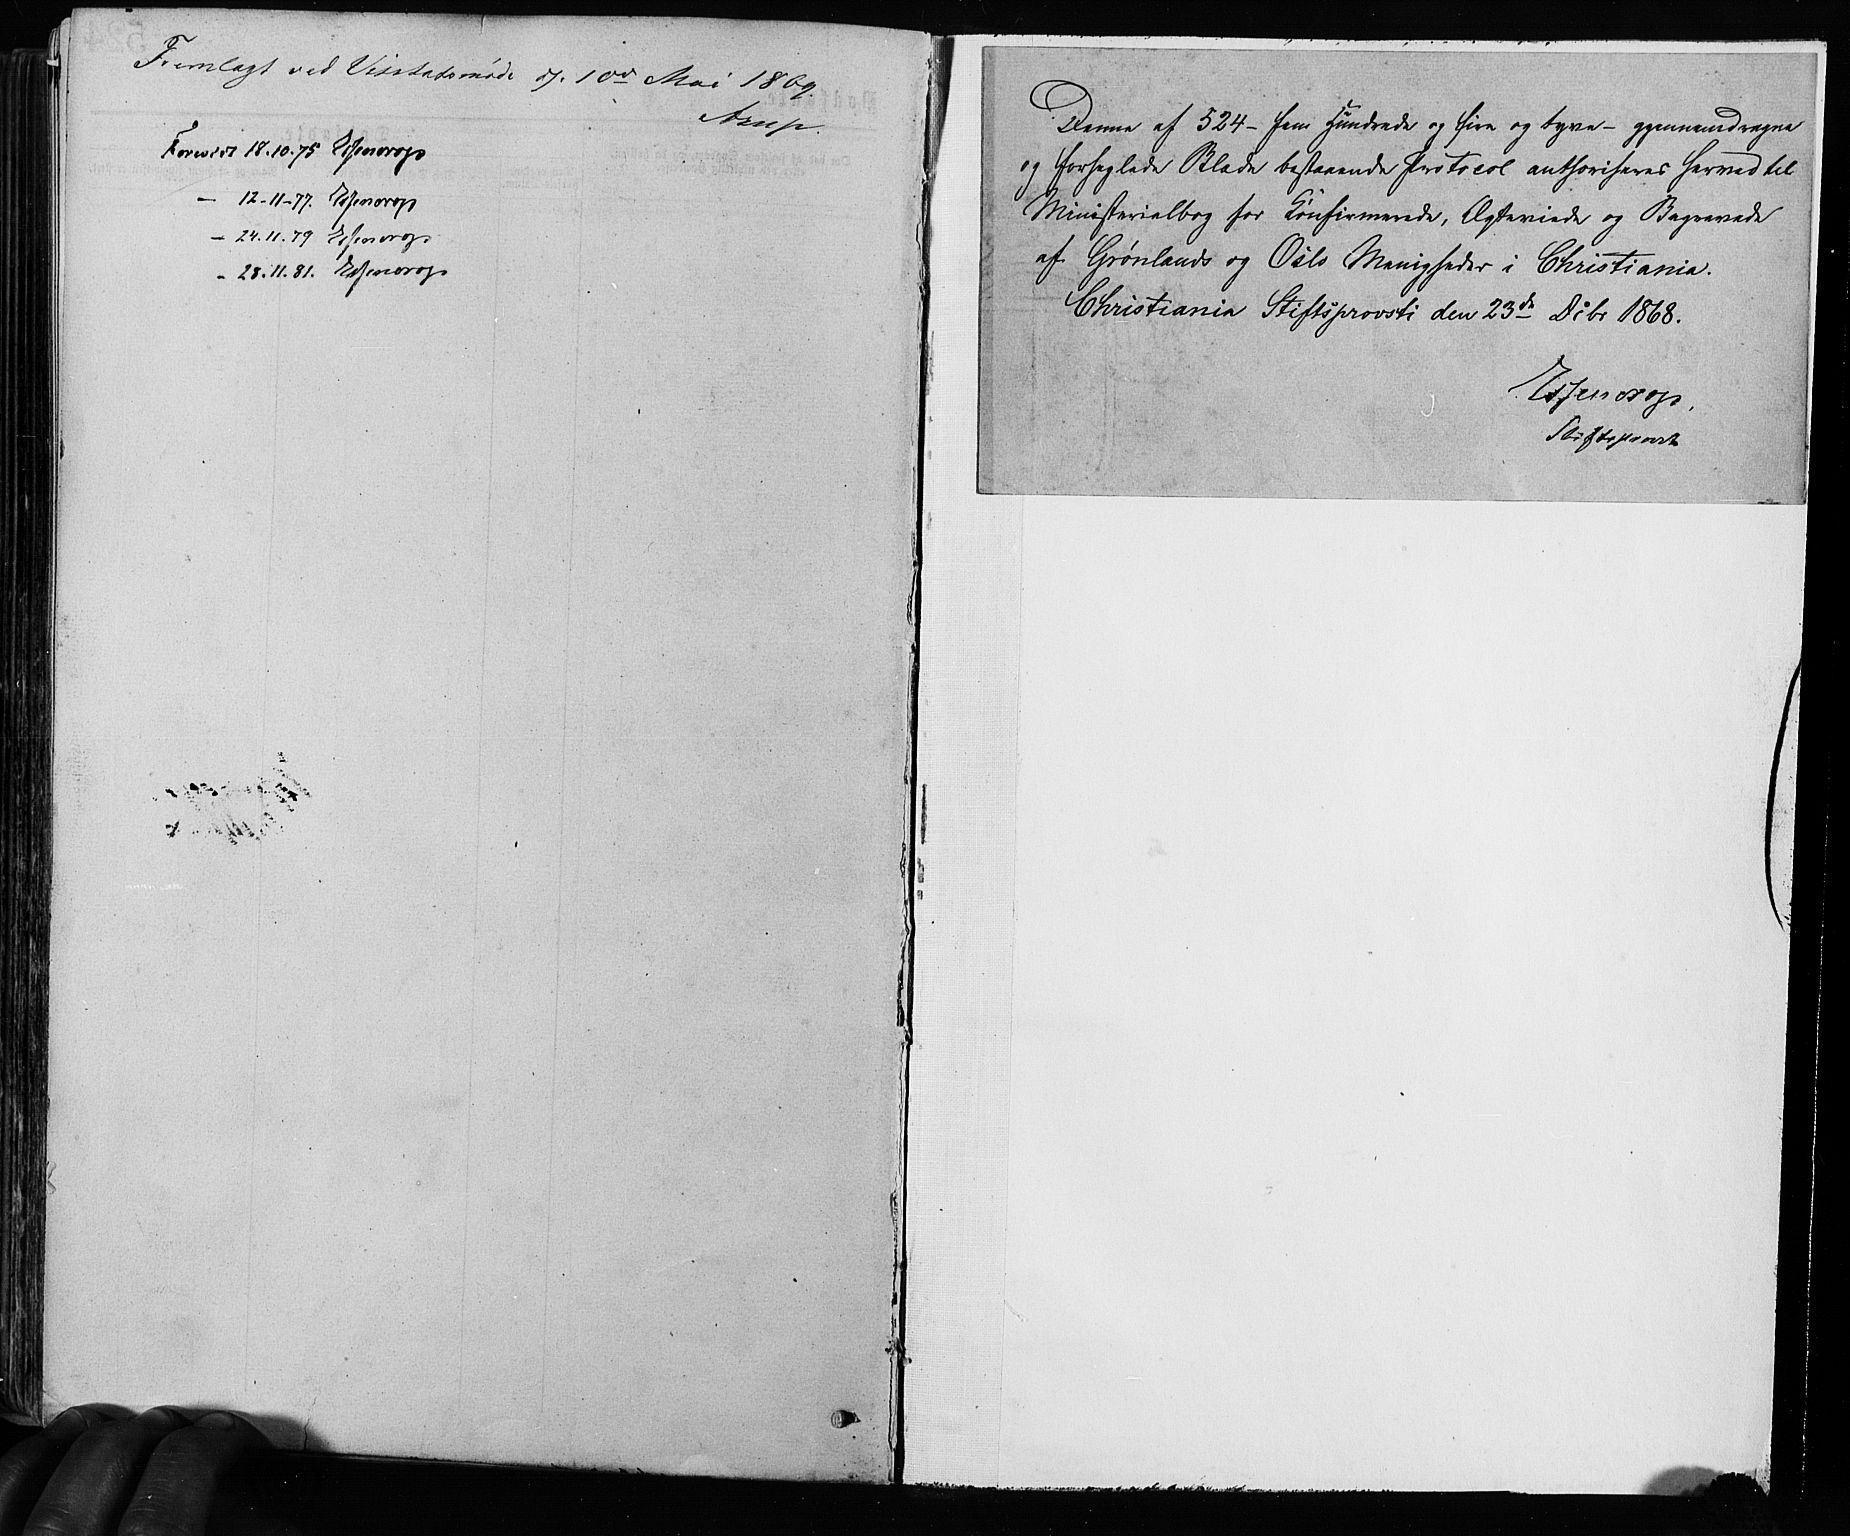 Fremlagt ved Visitatsmøde d. 10de Mai 1869.
Arup.
Forevist 18.10.75 Essendrop
— 12-11-77. Essendrop
— 24.11.79 Essendrop
— 28.11.81. Essendrop
Denne af 524 – fem Hundrede og fire og tyve – gjennemdragne
og forseglede Blade bestaaende Protocol authoriseres herved til
Ministerialbog for Konfirmerede, Ægteviede og Begravede
af Grønlands og Oslo Menigheder i Christiania.
Christiania Stiftsprovsti den 23de Dcbr 1868.
Essendrop,
Stiftsprovst